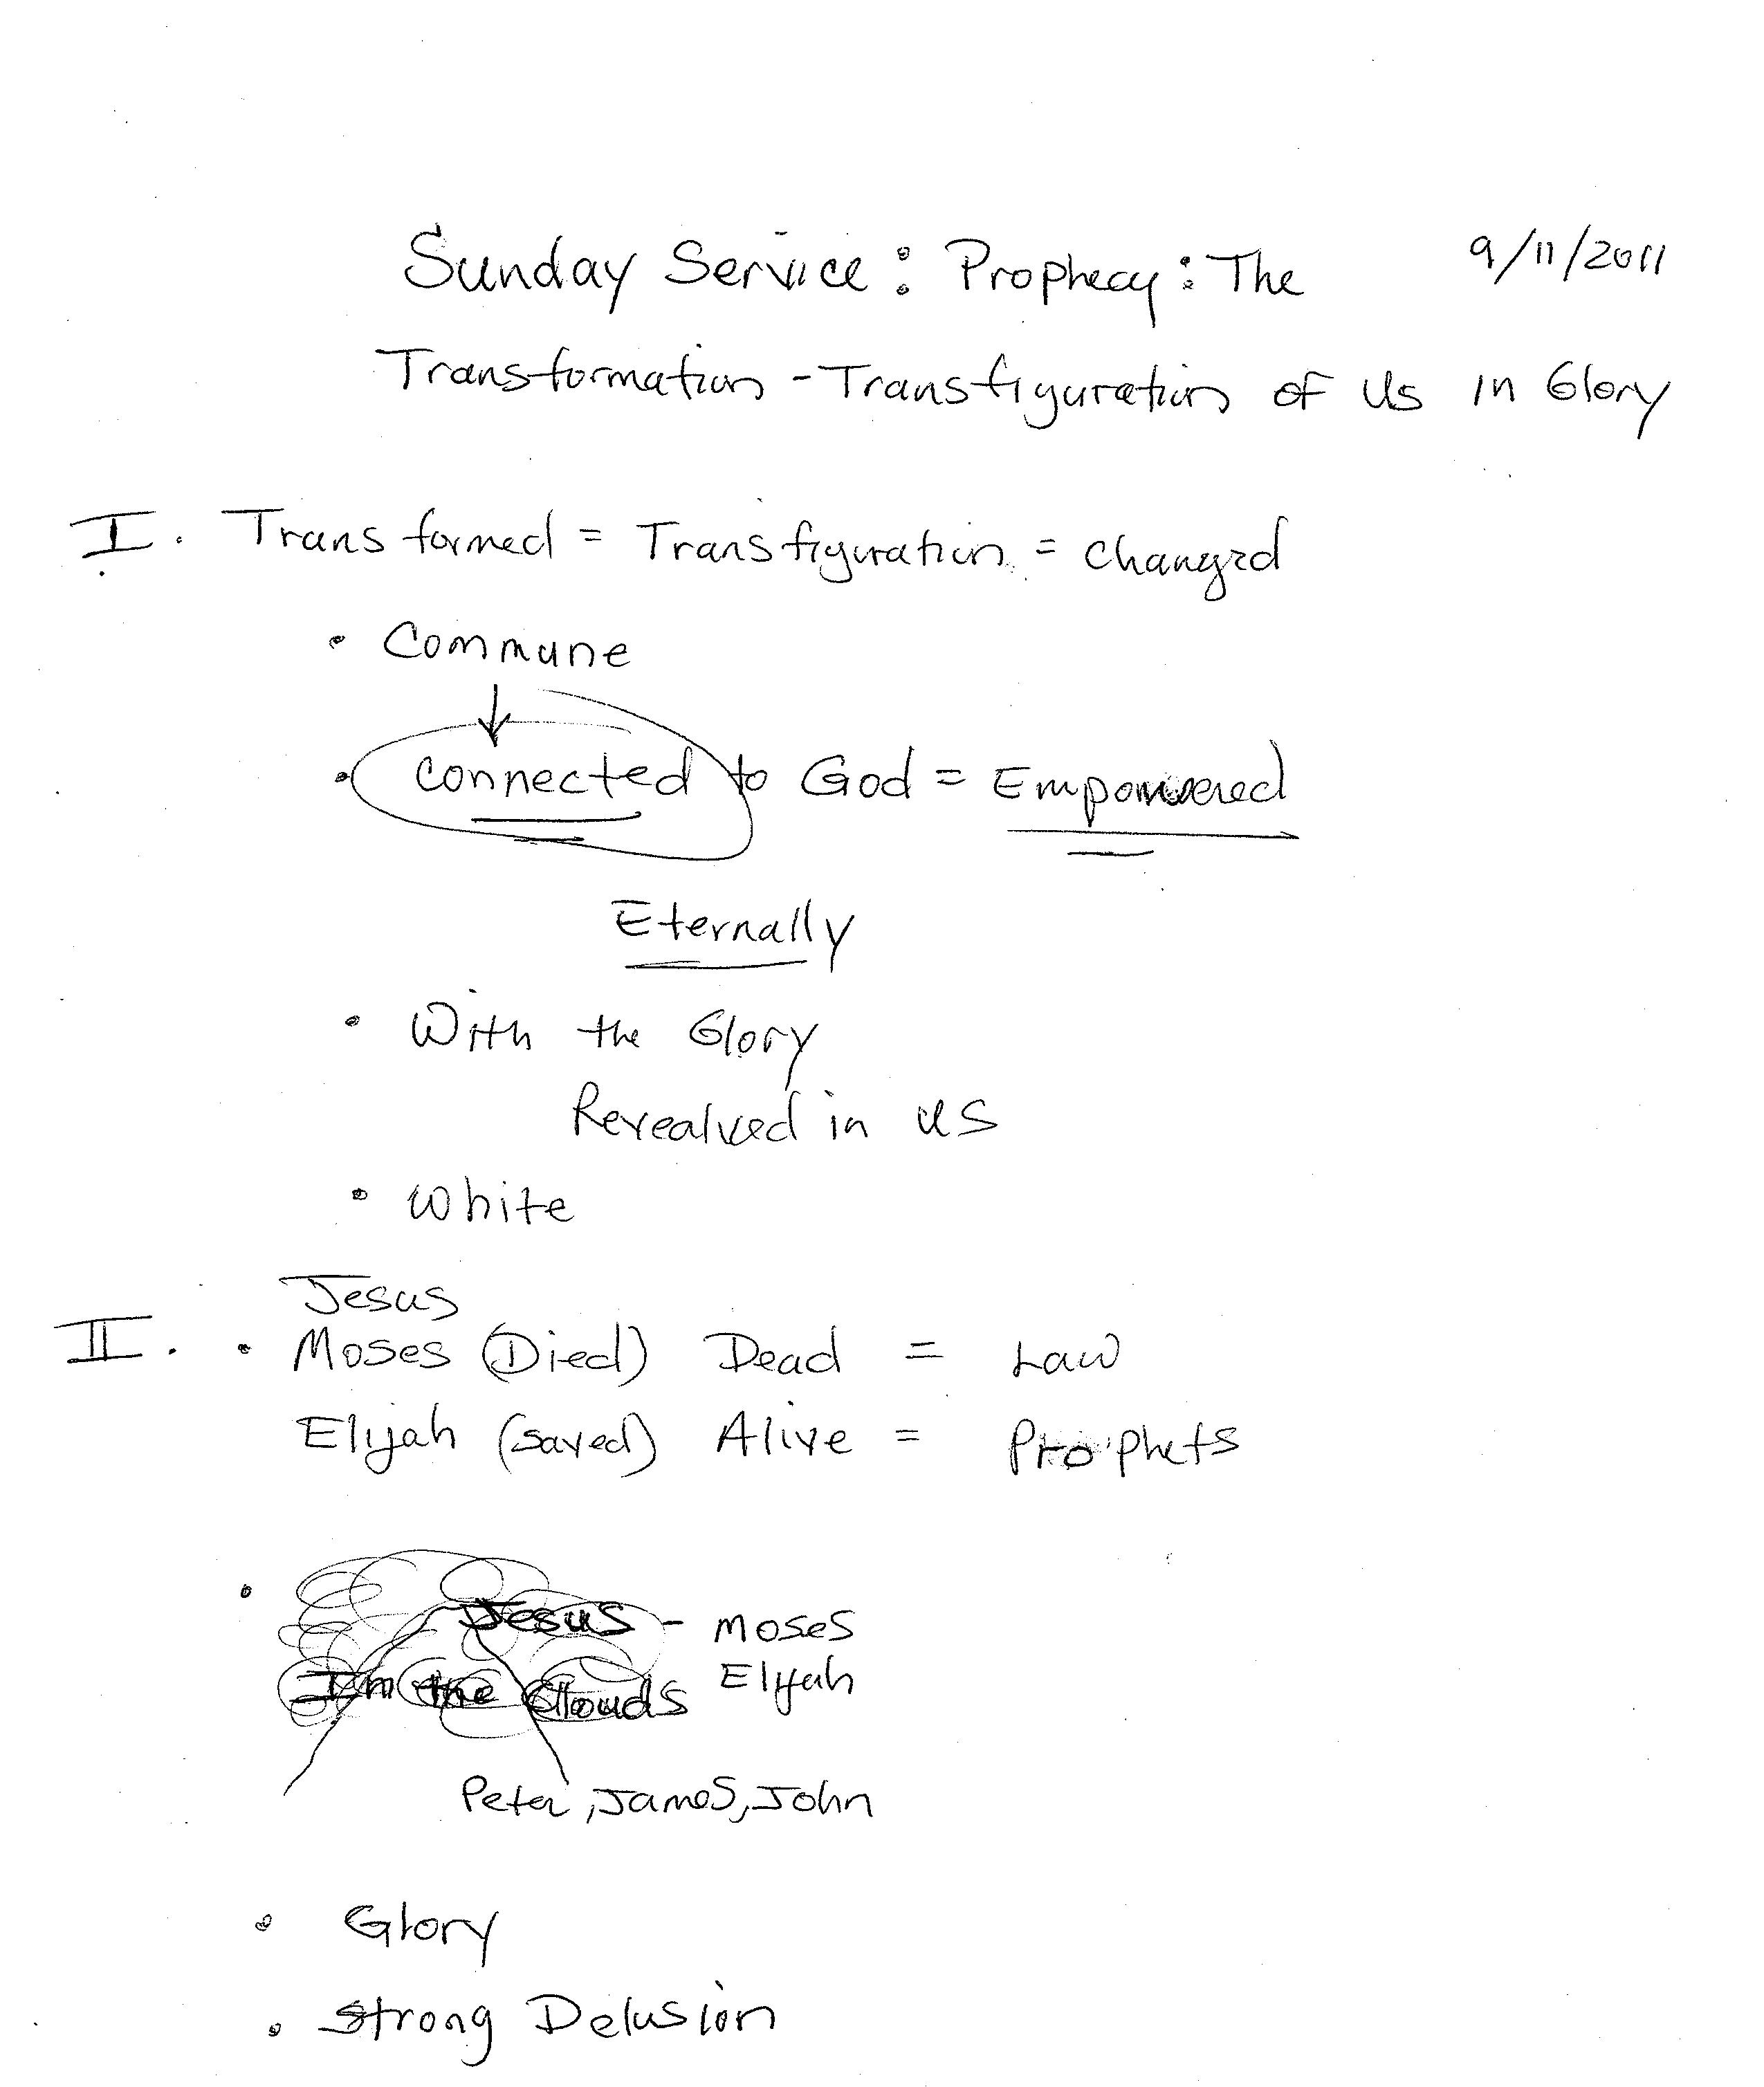 Sunday Service: Prophecy: The 9/11/2011
Transformation - Transfiguration of Us in Glory
I. Transformed = Transfiguration = Changed
• Commune
• Connected to God = Empowered
Eternally
• With the Glory
Revealved in us
• White
Jesus
II. • Moses (Died) Dead = Law
Elijah (saved) Alive = Prophets
• Jesus - Moses
In the Clouds Elijah
Peter, James, John
• Glory
• Strong Delusion